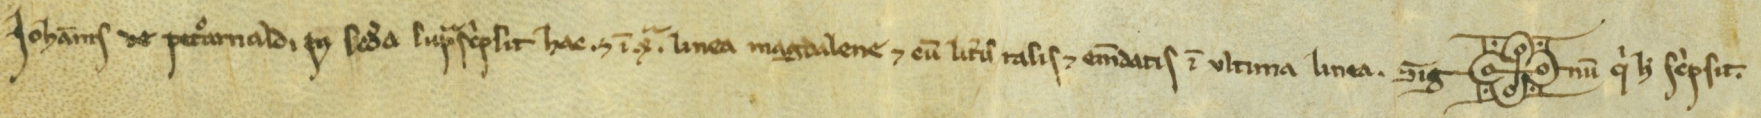 Johānis de petᵒarnaldi q̄ secd̄a supᵃsc̄psit hac. ⁊ ī .xᵃ. linea magdalene ⁊ cū lit̄is rasis ⁊ em̄datis ī ultima linea. Sig nū qⁱ h̄ sc̄psit.